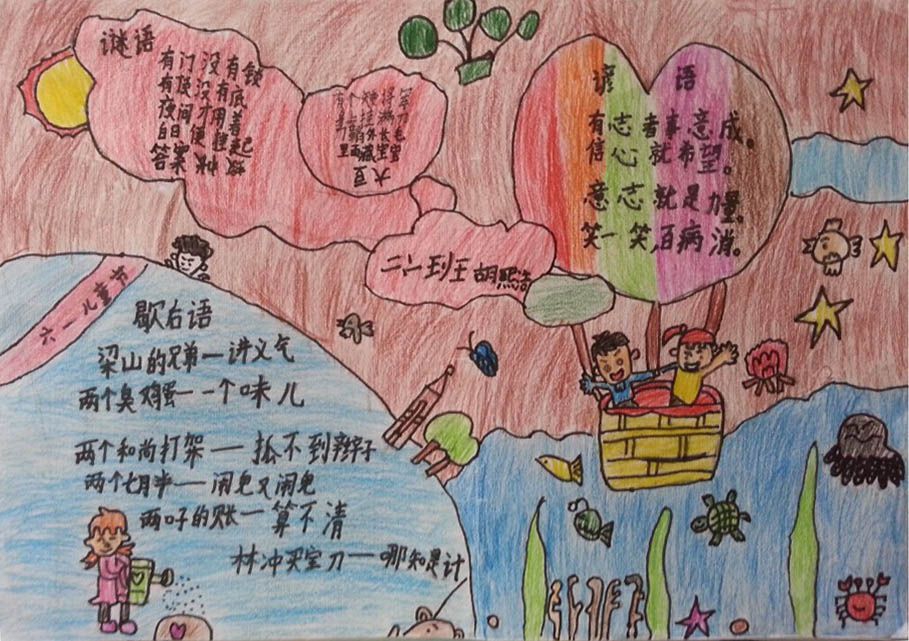 谜语
有门没有锁
有 没有底
夜间 用着
白日便 起
答案
大豆
谚语
有志者事意成。
信心就希望。
意志就是力量。
笑一笑,百病消。
王胡熙
六一儿童节
歇后语
梁山的兄弟—讲义气
两个臭鸡蛋—一个味儿
两个和尚打架—抓不到辫子
两个七月半—闹鬼又闹鬼
两口子的账—算不清
林冲买宝刀—哪知是计